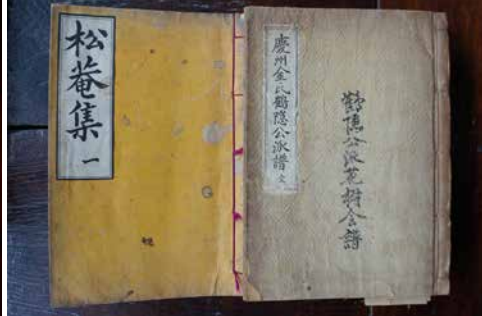 松菴集 一
慶州金氏鶴隱公派譜 全
鶴隱公派花樹会譜